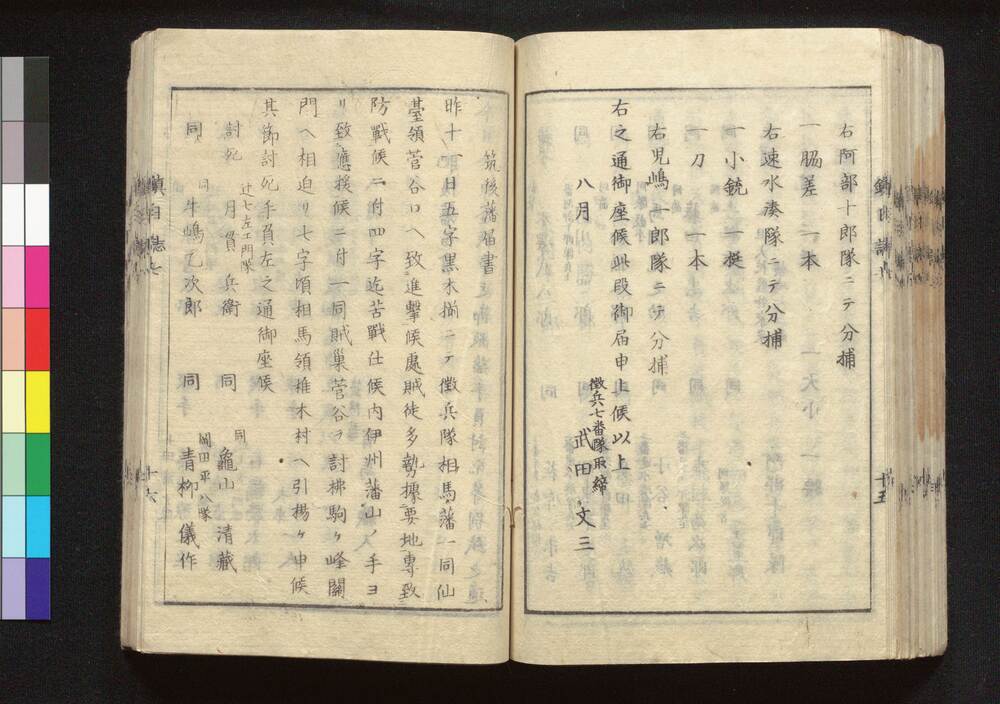 右阿部十郎隊ニテ分捕
一脇差 一本
右速水湊隊ニテ分捕
一小銃 一挺
一刀 一本
右児嶋一郎隊ニテ分捕
右之通御座候此段御届申上候以上
徴兵七番隊取締
八月 武田文三
十五
筑後藩届書
昨十一日五字黒木揃ニテ徴兵隊相馬藩一同仙
臺領菅谷口ヘ致進撃候處賊徒多勢據要地専致
防戰候ニ付四字迄苦戰仕候内伊州藩山ノ手ヨ
リ致應援候ニ付一同賊巣菅谷ヲ討拂駒ヶ峰關
門ヘ相迫リ七字頃相馬領椎木村ヘ引揚ケ申候
其節討死手負左之通御座候
辻七左エ門隊 同
討死 月貫兵衛 同 龜山清藏
同 岡田平八隊
同 牛嶋乙次郎 同 青柳儀作
鎮日誌七
十六